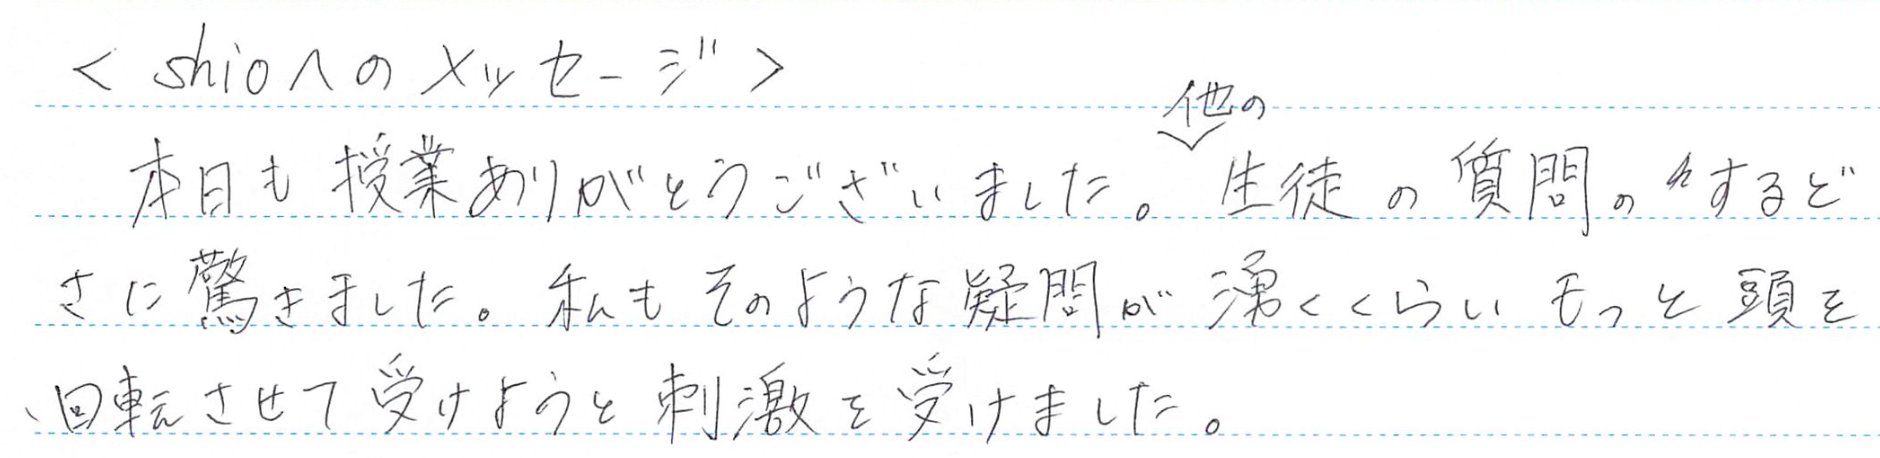 < shioへのメッセージ>
本日も授業ありがとうございました。他の生徒の質問のするど
さに驚きました。私もそのような疑問が湧くくらいもっと頭を
回転させて受けようと刺激を受けました。